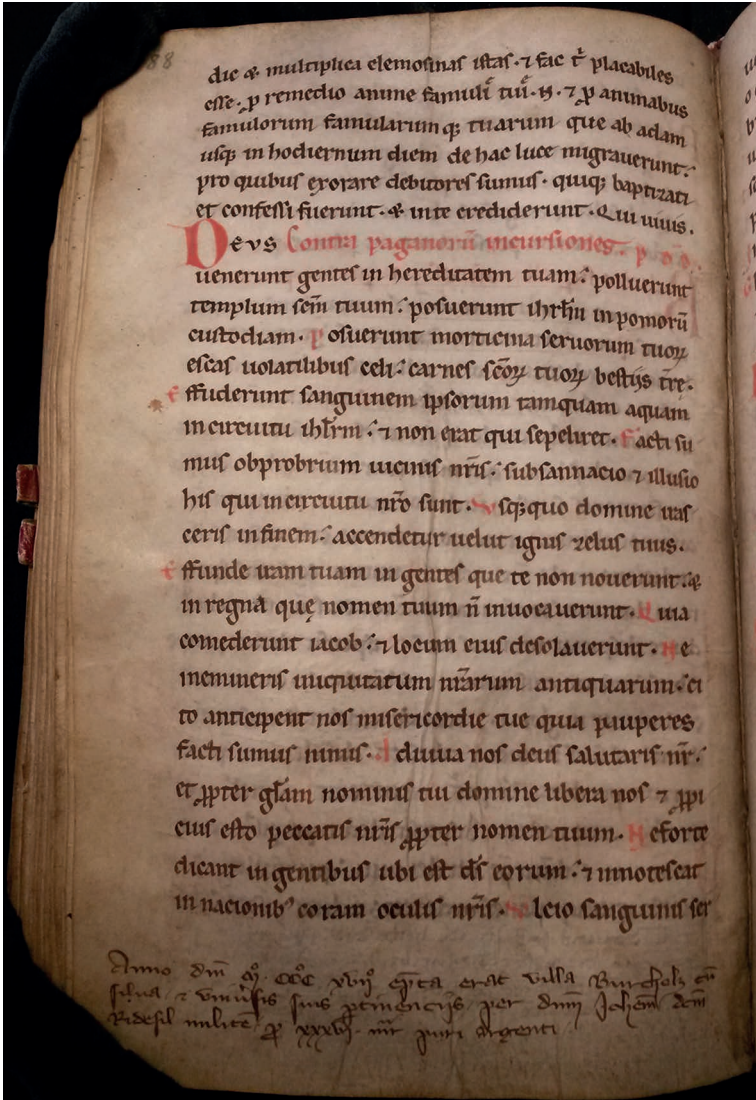 88
dic & multiplica elemosinas istas· ⁊ fac t̄ placabiles
esse· ꝑ remedio anime famuli tui· N· ⁊ ꝑ animabus
famulorum famularumq; tuarum que ab adam
usq; in hodiernum diem de hac luce migrauerunt·
pro quibus exorare debitores sumus· quiq; baptizati
et confessi fuerunt· & in te crediderunt· Qui uiuis.
Deus Contra paganorū incursiones·
uenerunt gentes in hereditatem tuam: polluerunt
templum scm̄ tuum: posuerunt ihrlm̄ in pomorū
custodiam· Posuerunt morticina seruorum tuoꝝ
escas uolatilibus celi: carnes scōꝝ tuoꝝ bestijs tr̄e·
Effuderunt sanguinem ipsorum tamquam aquam
in circuitu ihrl̄m: ⁊ non erat qui sepeliret· Facti su
mus obprobrium uicinis nr̄is: subsannacio ⁊ illusio
his qui in circuitu nr̄o sunt· Vsq;quo domine iras
ceris in finem: accendetur uelut ignis zelus tuus·
Effunde iram tuam in gentes que te non nouerunt: &
in regna quę nomen tuum n̄ inuocauerunt· Quia
comederunt iacob: ⁊ locum eius desolauerunt· Ne
memineris iniquitatum nr̄arum antiquarum: ci
to anticipent nos misericordie tue quia pauperes
facti sumus nimis· Adiuua nos deus salutaris nr̄:
et ꝓpter gl̄am nominis tui domine libera nos ⁊ ꝓpi
cius esto peccatis nr̄is ꝓpter nomen tuum· Ne forte
dicant in gentibus ubi est ds̄ eorum: ⁊ innotescat
in nacionibꝰ coram oculis nr̄is· Vlcio sanguinis ser
Anno dm̄ Mͦ CCCͦ xviijͦ ep̄ta erat villa Burcholz cū
silua ⁊ vniu̾sis suis ꝑtinencijs per dnm̄ Johem̄ dcm̄
Ridesil militē ꝓ xxxvij mr̄ puri argenti